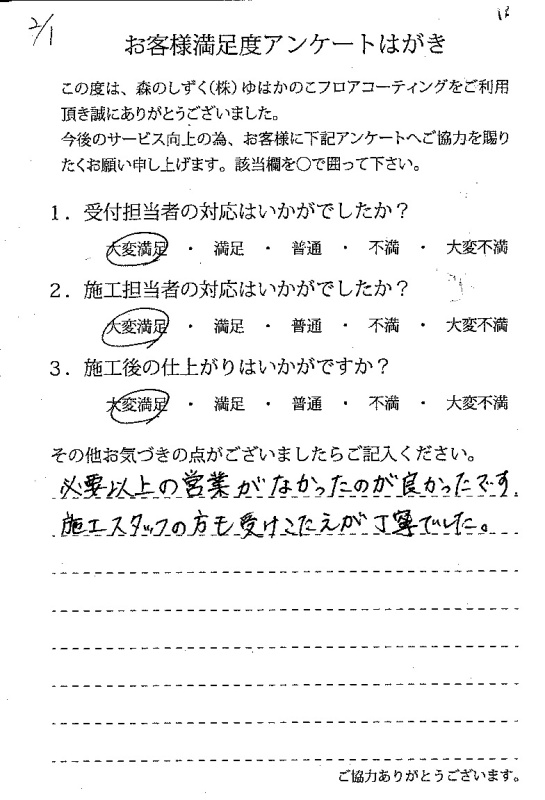 2/1
お客様満足度アンケートはがき
この度は、森のしずく(株)ゆはかのこフロアコーティングをご利用
頂き誠にありがとうございました。
今後のサービス向上の為、お客様に下記アンケートへご協力を賜り
たくお願い申し上げます。該当欄を○で囲って下さい。
1．受付担当者の対応はいかがでしたか？
大変満足 ・ 満足 ・ 普通 ・ 不満 ・ 大変不満
2．施工担当者の対応はいかがでしたか？
大変満足 ・ 満足 ・ 普通 ・ 不満 ・ 大変不満
3．施工後の仕上がりはいかがですか？
大変満足 ・ 満足 ・ 普通 ・ 不満 ・ 大変不満
その他お気づきの点がございましたらご記入ください。
必要以上の営業がなかったのが良かったです
施工スタッフの方も受けこたえが丁寧でした。
ご協力ありがとうございます。